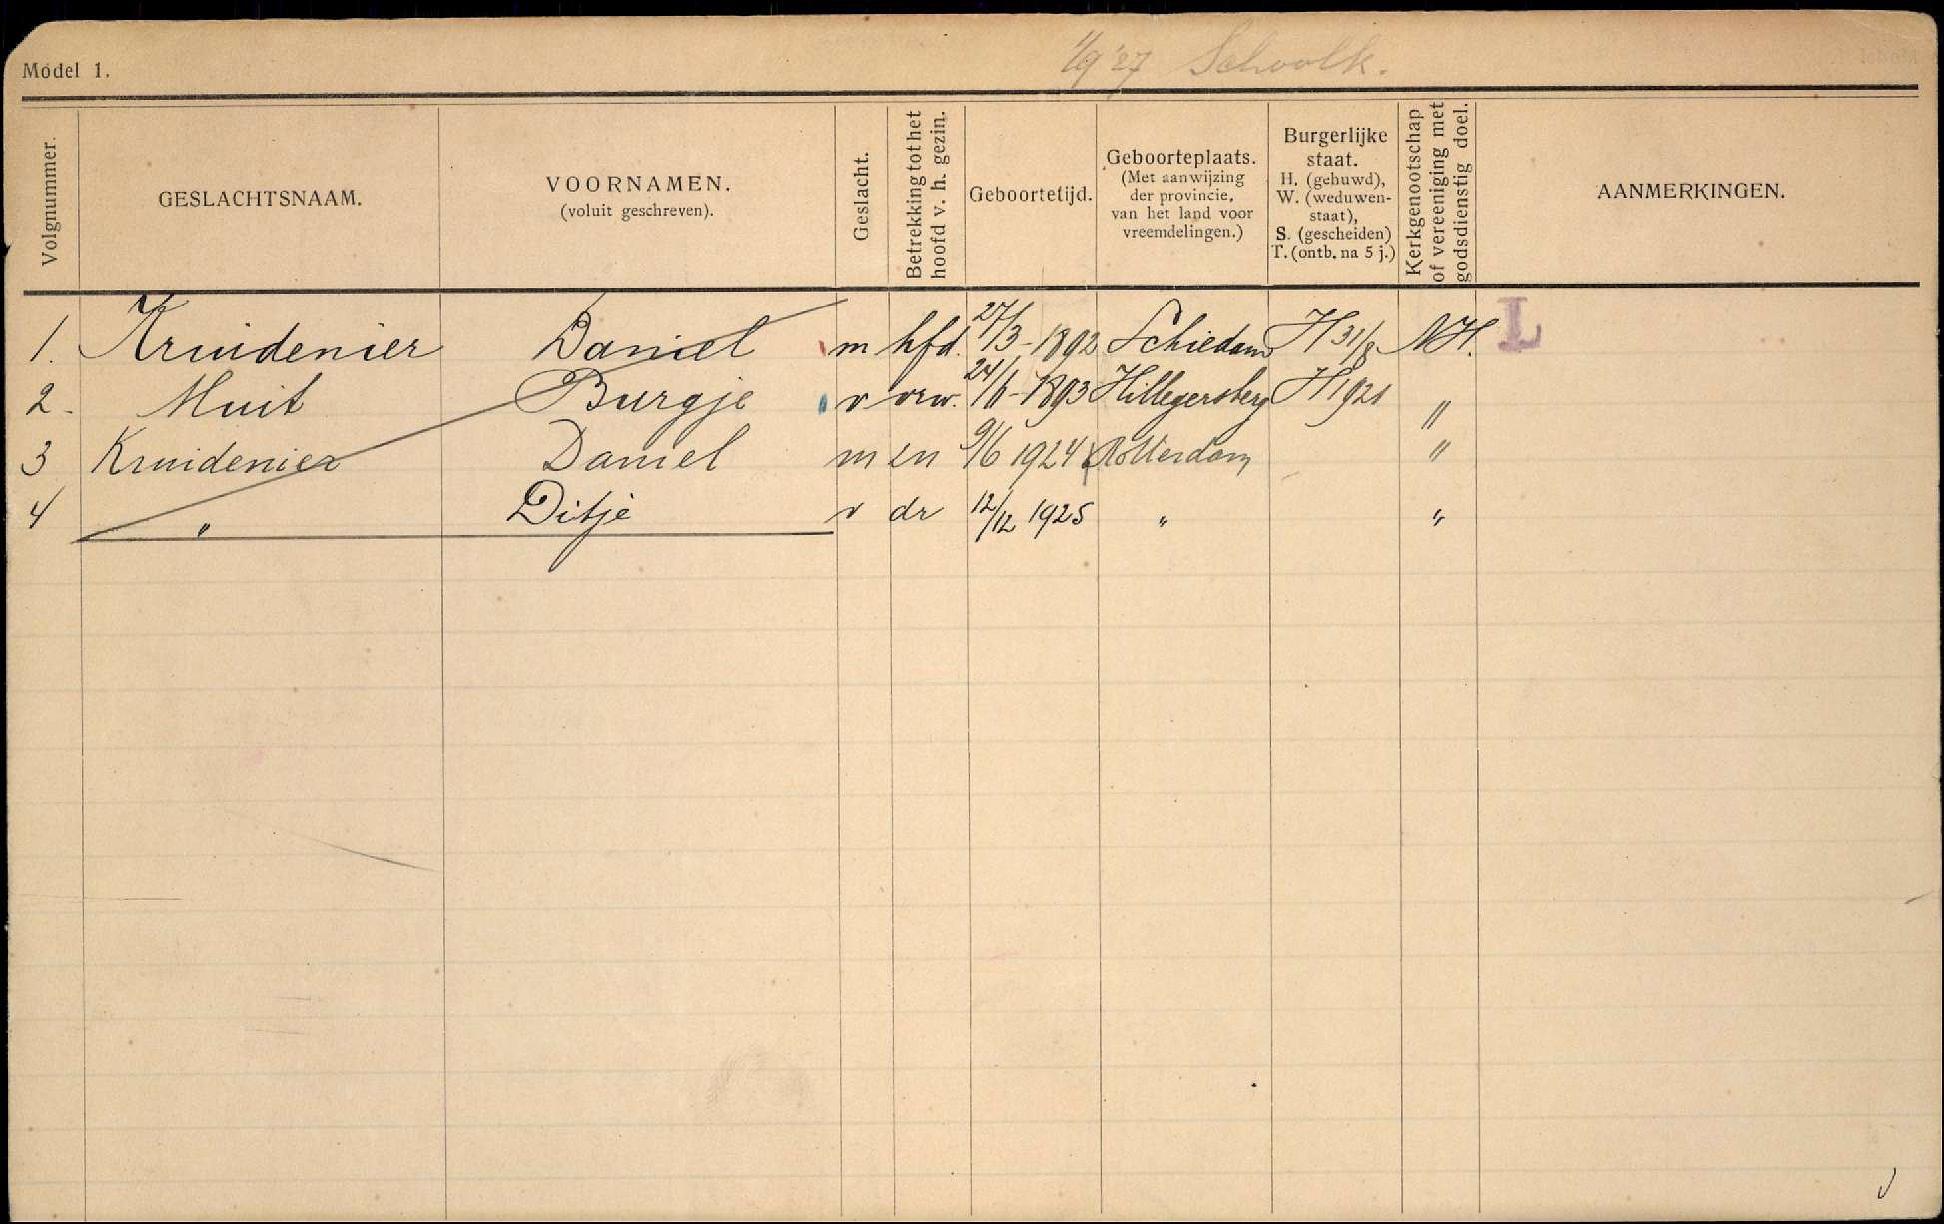 Model 1.
1/9 '27 Schoolk.
Volgnummer.
GESLACHTSNAAM.
VOORNAMEN.
(voluit geschreven).
Geslacht.
Betrekking tot het
hoofd v. h. gezin.
Geboortetijd.
Geboorteplaats.
(Met aanwijzing
der provincie,
van het land voor
vreemdelingen.)
Burgerlijke
staat.
H. (gehuwd),
W. (weduwen-
staat),
S. (gescheiden)
T. (ontb. na 5 j.)
Kerkgenootschap
of vereeniging met
godsdienstig doel.
AANMERKINGEN.
1. Kruidenier Daniel m hfd. 27/3-1892 Schiedam H 31/8 NH. L
2. Muit Burgje v vrw. -1893 Hillegersberg H 1921 "
3 Kruidenier Daniel m zn 9/6 1924 Rotterdam "
4 " Ditje v dr 12/12 1925 " "